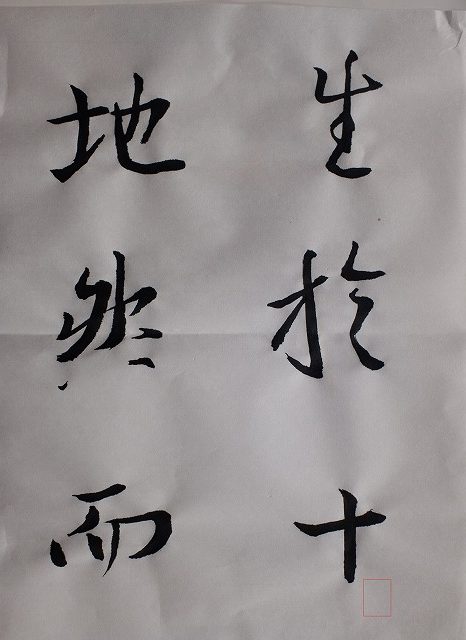 生於十
地然而